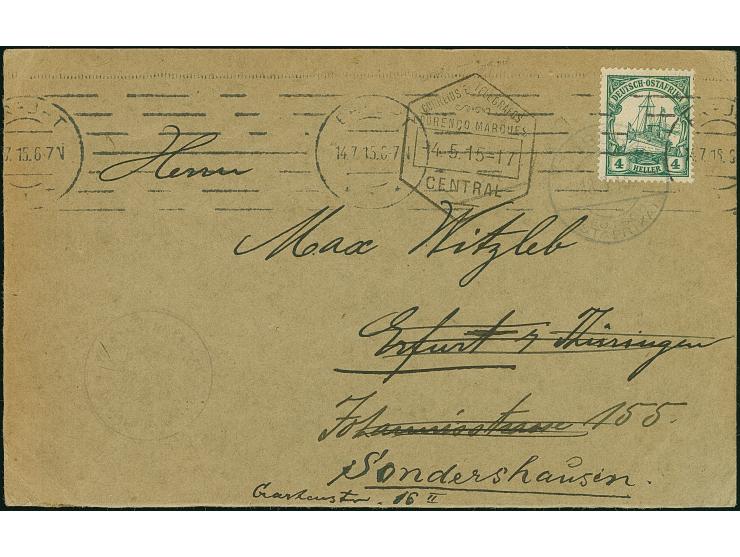 14.7.15.6-7V
CORREIOS E TELEGRAPHOS
LOURENÇO MARQUES
14-5-15-17
CENTRAL
DEUTSCH-OSTAFRIKA
4 HELLER 4
Herrn
Max Witzleb
Erfurt i/ Thüringen
Johannisstrasse 155.
Sondershausen.
16 II